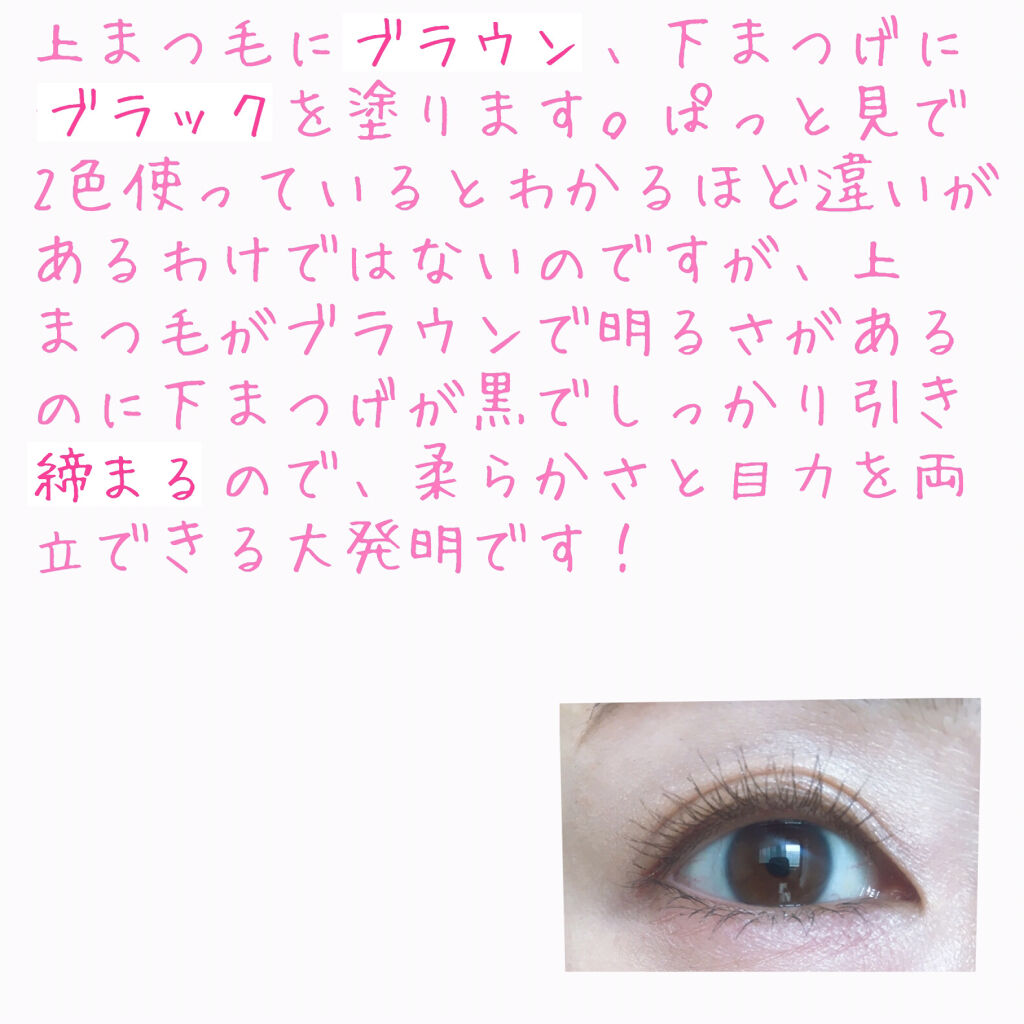 上まつ毛にブラウン、下まつげに
ブラックを塗ります。ぱっと見で
2色使っているとわかるほど違いが
あるわけではないのですが、上
まつ毛がブラウンで明るさがある
のに下まつげが黒でしっかり引き
締まるので、柔らかさと目力を両
立できる大発明です!